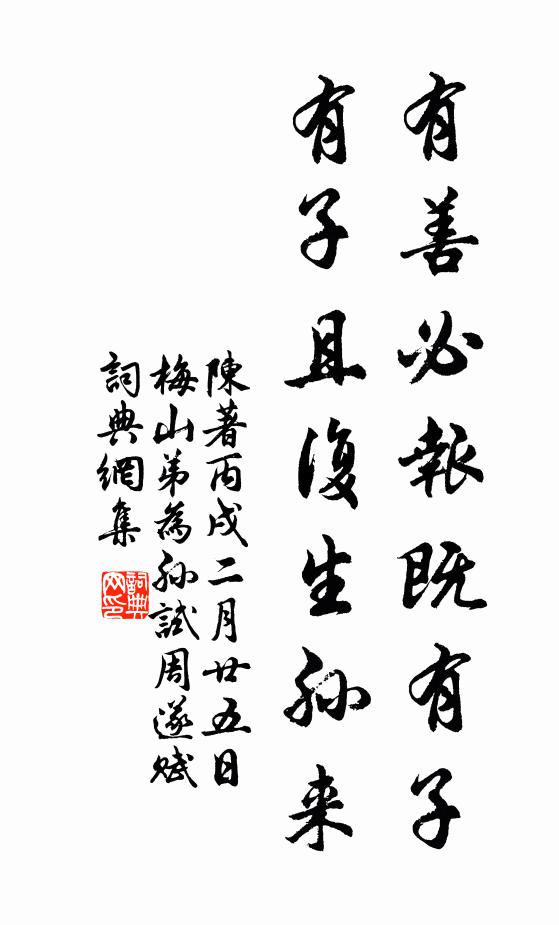 有善必報既有子
有子且復生孙来
陳著丙戌二月廿五日
梅山弟為孙試周遂賦
詞典網集
詞典网印